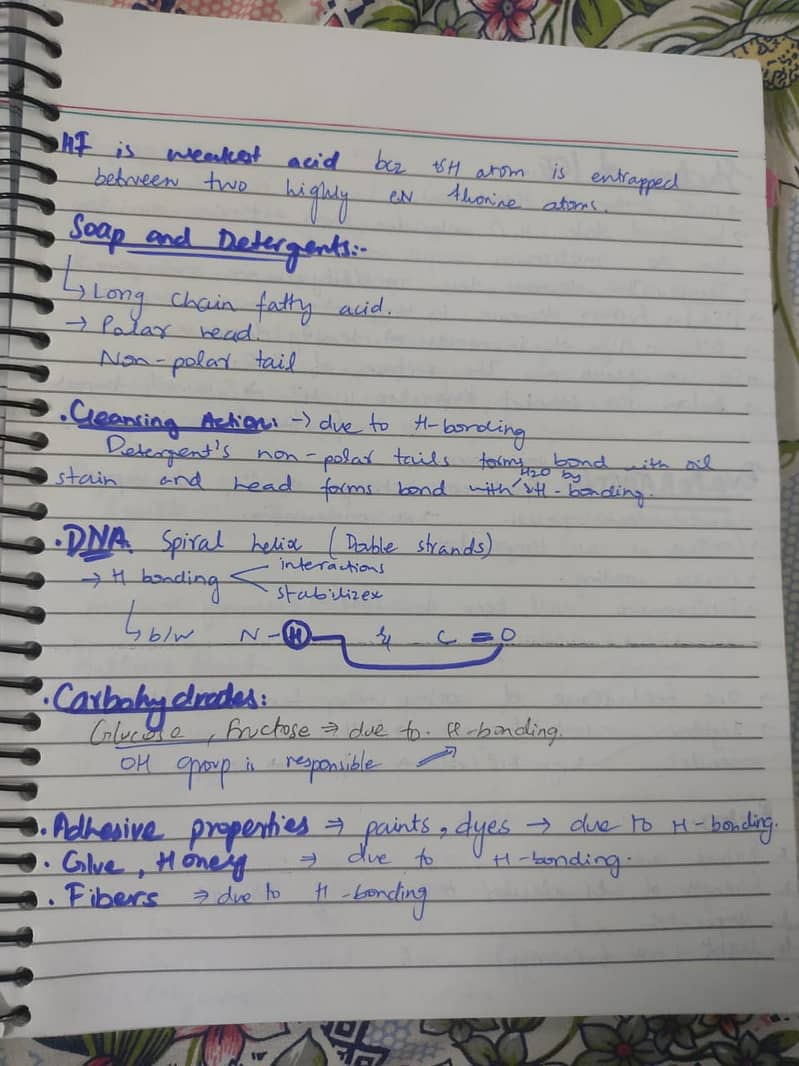 HF is weakest acid bcz its H atom is entrapped
between two highly EN fluorine atoms.
Soap and Detergents:-
↳ Long chain fatty acid.
→ Polar head.
Non-polar tail
• Cleansing Action: → due to H-bonding
Detergent's non-polar tails forms bond with oil
stain and head forms bond with H2O by its H-bonding.
• DNA Spiral helix (Double strands)
→ H bonding < interactions
stabilizex
↳ b/w N-H & C=O
• Carbohydrades:
Glucose, Fructose ⇒ due to H-bonding.
OH group is responsible
• Adhesive properties ⇒ paints, dyes → due to H-bonding.
• Glue, Honey ⇒ due to H-bonding.
• Fibers ⇒ due to H-bonding